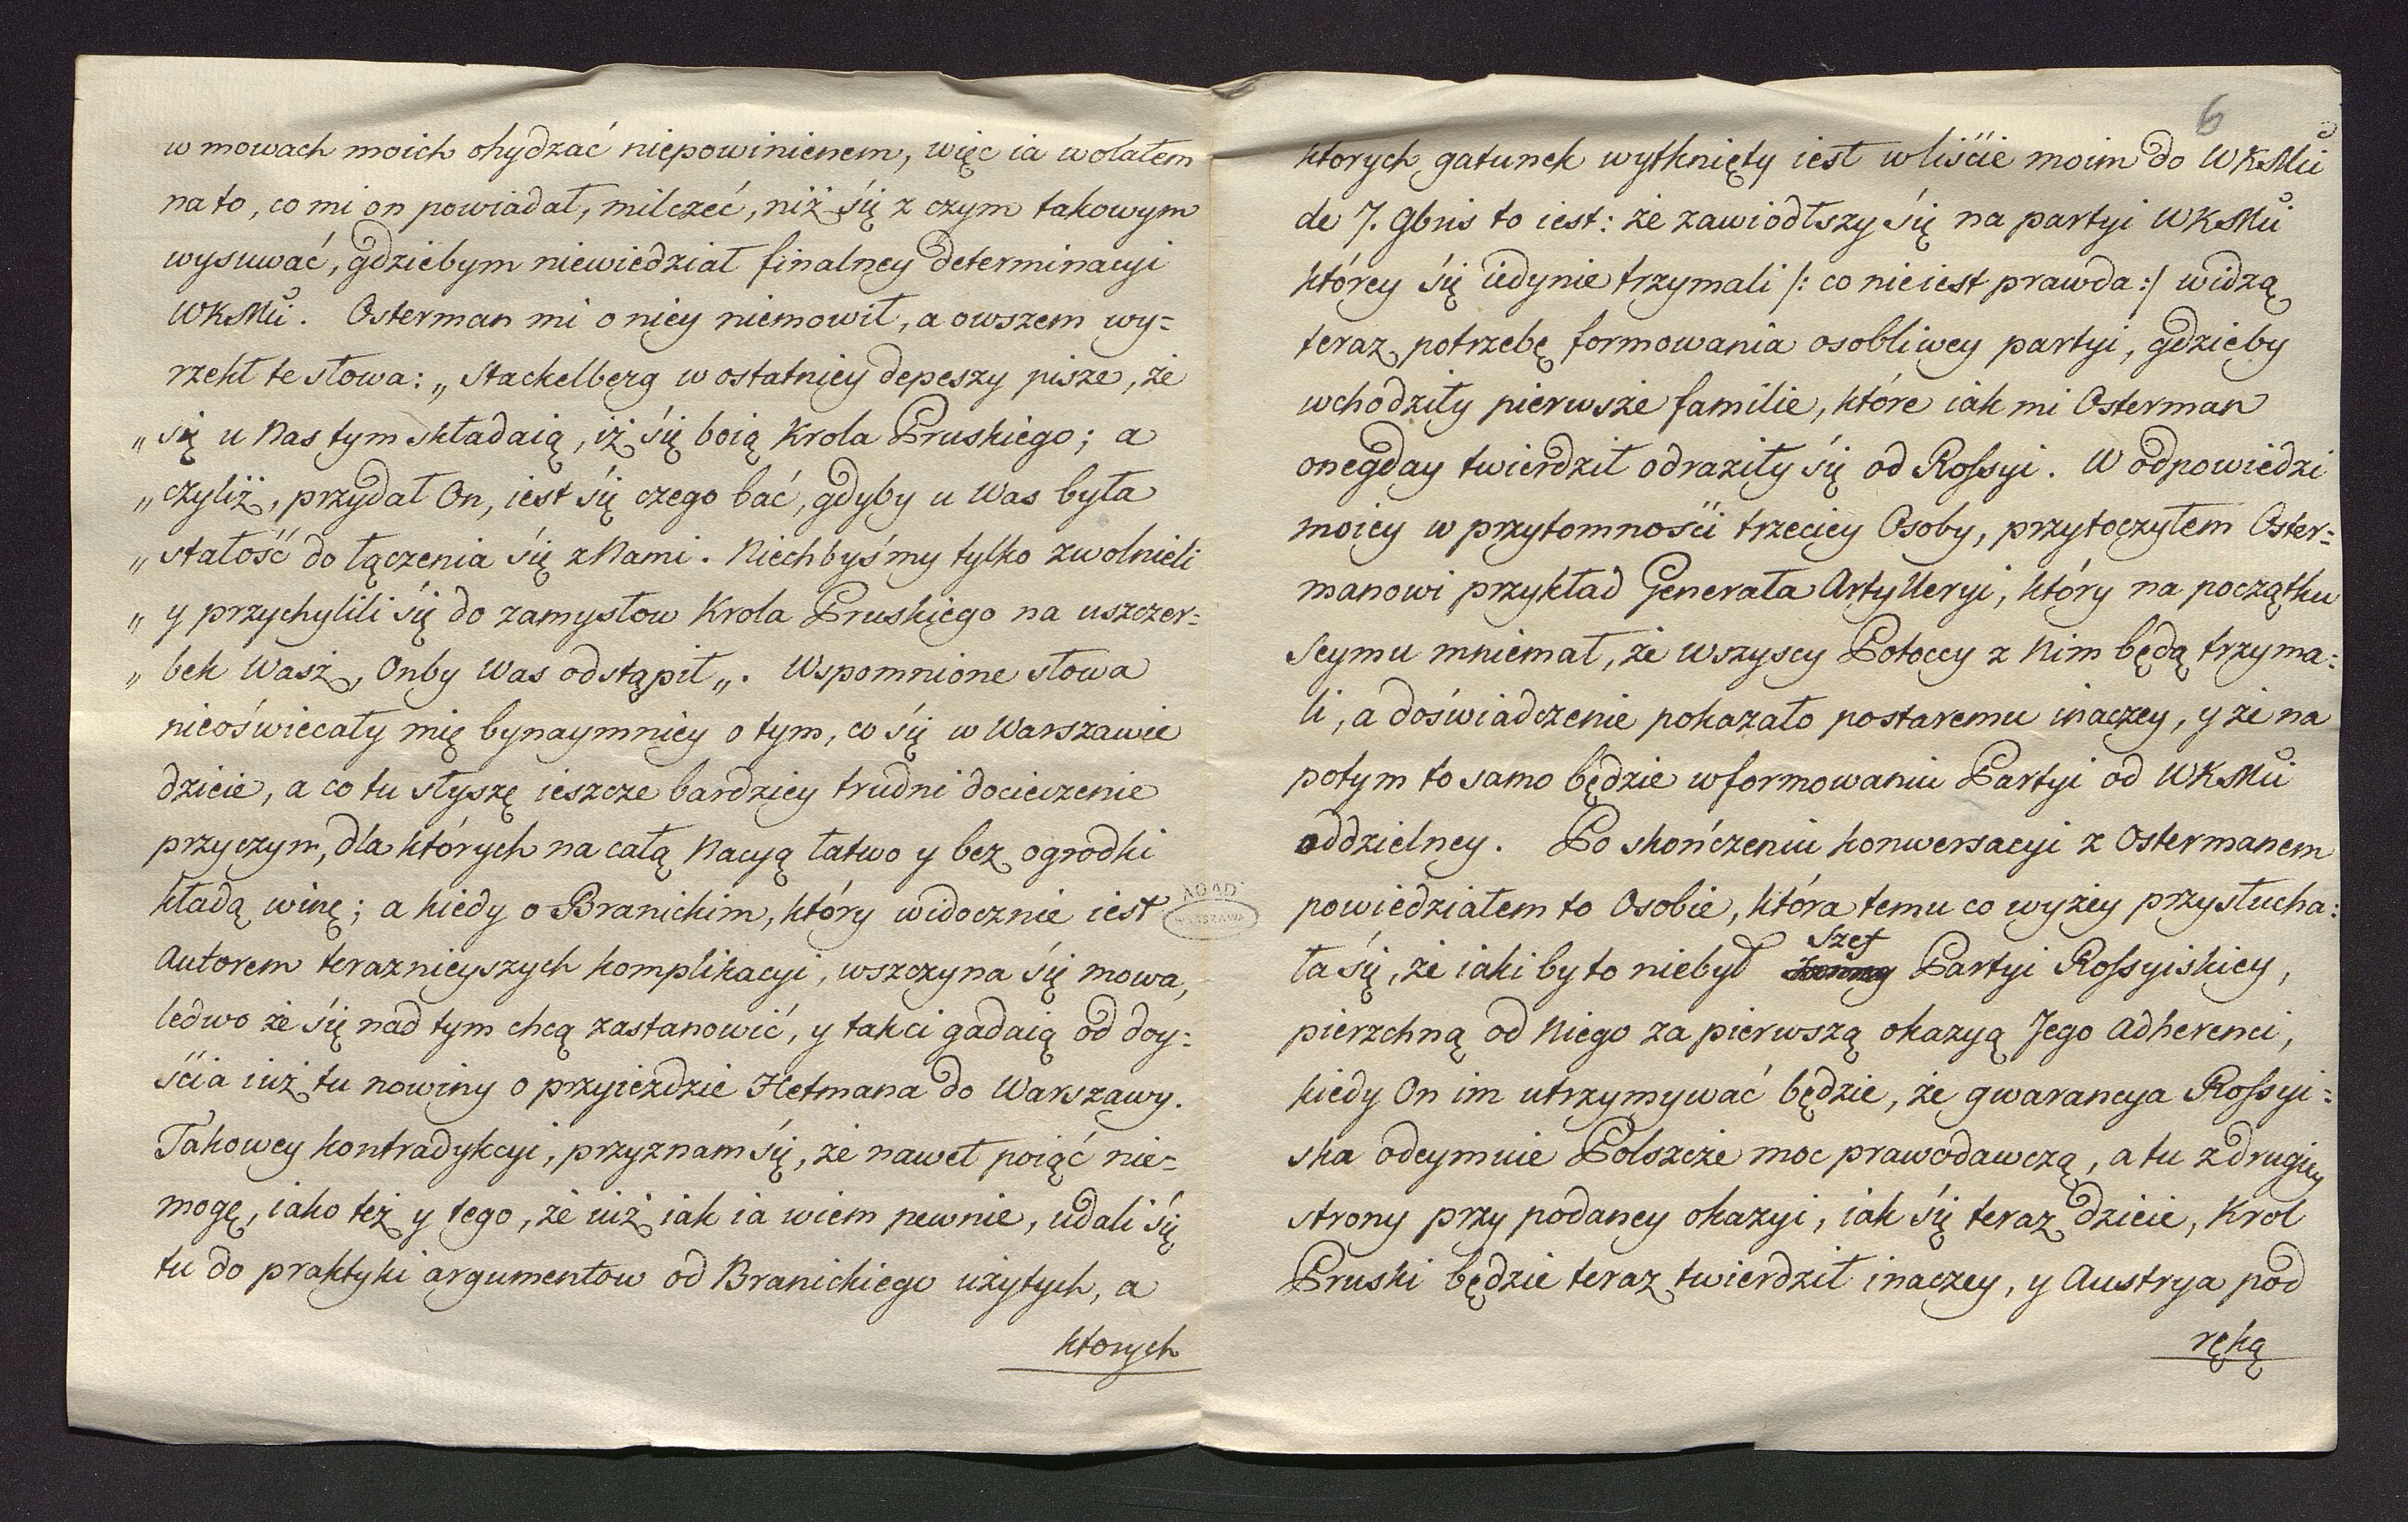 w mowach moich ohydzać niepowinienem, więc ia wolałem
na to, co mi on powiadał, milczeć, niż się z czym takowym
wysuwać, gdziebym niewiedział finalney determinacyi
WKMći. Osterman mi o niey niemowił, a owszem wy=
rzekł te słowa: „Stackelberg w ostatniey depeszy pisze, że
„się u Nas tym składaią, iż się boią Krola Pruskiego; a
„czyliż, przydał On, iest się czego bać, gdyby u Was była
„stałość do łączenia się z Nami. Niechbyśmy tylko zwolnieli
„y przychylili się do zamysłow Krola Pruskiego na uszczer=
„bek Wasz, Onby Was odstąpił„. Wspomnione słowa
nieoświecały mię bynaymniey o tym, co się w Warszawie
dzieie, a co tu słyszę ieszcze bardziey trudni docieczenie
przyczyn, dla których na całą Nacyą łatwo y bez ogrodki
kładą winę; a kiedy o Branickim, który widocznie iest
Autorem teraznieyszych komplikacyi, wszczyna się mowa,
ledwo że się nad tym chcą zastanowić, y takci gadaią od doy=
ścia iuż tu nowiny o przyieździe Hetmana do Warszawy.
Takowey kontradykcyi, przyznam się, że nawet poiąć nie=
mogę, iako też y tego, że iuż iak ia wiem pewnie, udali się
tu do praktyki argumentow od Branickiego użytych, a
ktorych
6
ktorych gatunek wytknięty iest w liście moim do WKMći
de 7. 9bris to iest: że zawiodłszy się na partyi WKMći
którey się iedynie trzymali /: co nie iest prawda :/ widzą
teraz potrzebę formowania osobliwey partyi, gdzieby
wchodziły pierwsze familie, które iak mi Osterman
onegday twierdził odraziły się od Rossyi. W odpowiedzi
moiey w przytomności trzeciey Osoby, przytoczyłem Oster=
manowi przykład Generała Artylleryi, który na początku
Seymu mniemał, że wszyscy Potoccy z Nim będą trzyma=
li, a doświadczenie pokazało postaremu inaczey, y że na
potym to samo będzie w formowaniu Partyi od WKMći
oddzielney. Po skończeniu konwersacyi z Ostermanem
powiedziałem to Osobie, która temu co wyżey przysłucha=
ła się, że iaki by to niebył Szef Partyi Rossyiskiey,
pierzchną od Niego za pierwszą okazyą Jego Adherenci,
kiedy On im utrzymywać będzie, że gwarancya Rossyi=
ska odeymuie Polszcze moc prawodawczą, a tu z drugiey
strony przy podaney okazyi, iak się teraz dzieie, Krol
Pruski będzie teraz twierdził inaczey, y Austrya pod
ręką
AGAD
WARSZAWA